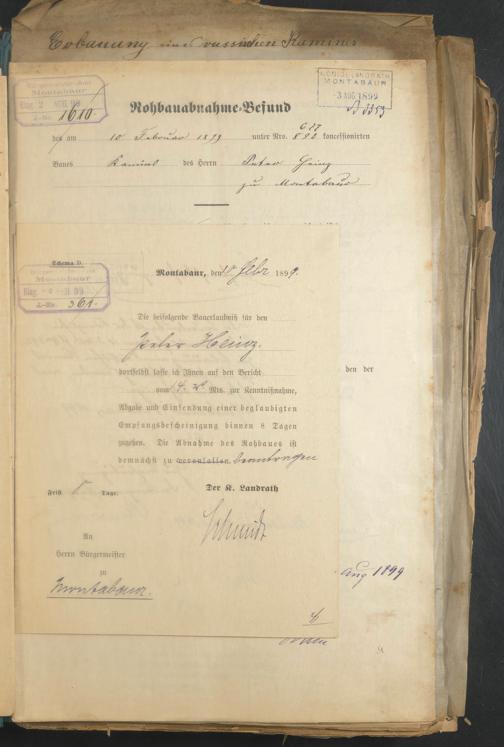 Erbauung eines russischen Kamines
Bürgermeister-Amt
Montabaur
Eing. 2 AUG. 99
J.-No. 1610.
KÖNIGL. LANDRATH
MONTABAUR
3 AUG 1899
Rohbauabnahme-Befund
des am 10 Februar 1899 unter Nro. koncessionirten
Baues Kamins des Herrn Peter Heinz
zu Montabaur
Schema D.
Montabaur
Eing. 99
J.-No. 361.
Montabaur, den 10 Febr 1899.
Die beifolgende Bauerlaubniß für den
Peter Heinz
dortselbst lasse ich Ihnen auf den Bericht
vom 4. d. Mts. zur Kenntnißnahme,
Abgabe und Einsendung einer beglaubigten
Empfangsbescheinigung binnen 8 Tagen
zugehen. Die Abnahme des Rohbaues ist
demnächst zu veranlassen beantragen
ben der
Frist Tage.
Der K. Landrath
Schmidt
An
Herrn Bürgermeister
zu
Montabaur.
Aug 1899